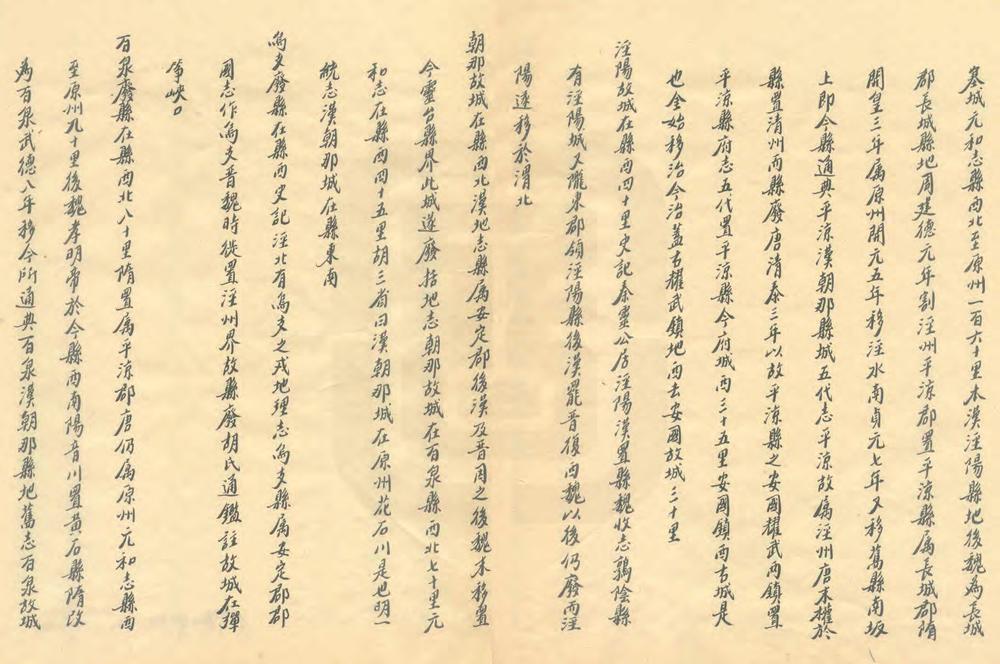 塞城元和志縣西北至原州一百六十里本漢涇陽縣地後魏為長城
郡長城縣地周建德元年割涇州平涼郡置平涼縣属長城郡隋
開皇三年属原州開元五年移涇水南貞元七年又移舊縣南坂
上即今縣通典平涼漢朝那縣城五代志平涼故属涇州唐末權於
縣置渭州而縣廢唐清泰三年以故平涼縣之安國耀武两鎮置
平涼縣府志五代置平涼縣今府城西三十五里安國鎮西古城是
也金始移治今治蓋古耀武鎮地西去安國故城三十里
涇陽故城在縣西四十里史記秦靈公居涇陽漢置縣魏收志鶉陰縣
有涇陽城又隴東郡領涇陽縣後漢罷晋復西魏以後仍廢而涇
陽遂移於渭北
朝那故城在縣西北漢地志縣属安定郡後漢及晋因之後魏末移置
今靈台縣界此城遂廢括地志朝那故城在百泉縣西北七十里元
和志在縣西四十五里胡三省曰漢朝那城在原州花石川是也明一
統志漢朝那城在縣東南
烏支廢縣在縣西史記涇北有烏支之戎地理志烏支縣属安定郡郡
國志作烏支晋魏時從置涇州界故縣廢胡氏通鑑註故城在彈
箏峽口
百泉廢縣在縣西北八十里隋置属平涼郡唐仍属原州元和志縣西
至原州九十里後魏孝明帝於今縣西南陽音川置黄石縣隋改
為百泉武德八年移今所通典百泉漢朝那縣地舊志百泉故城